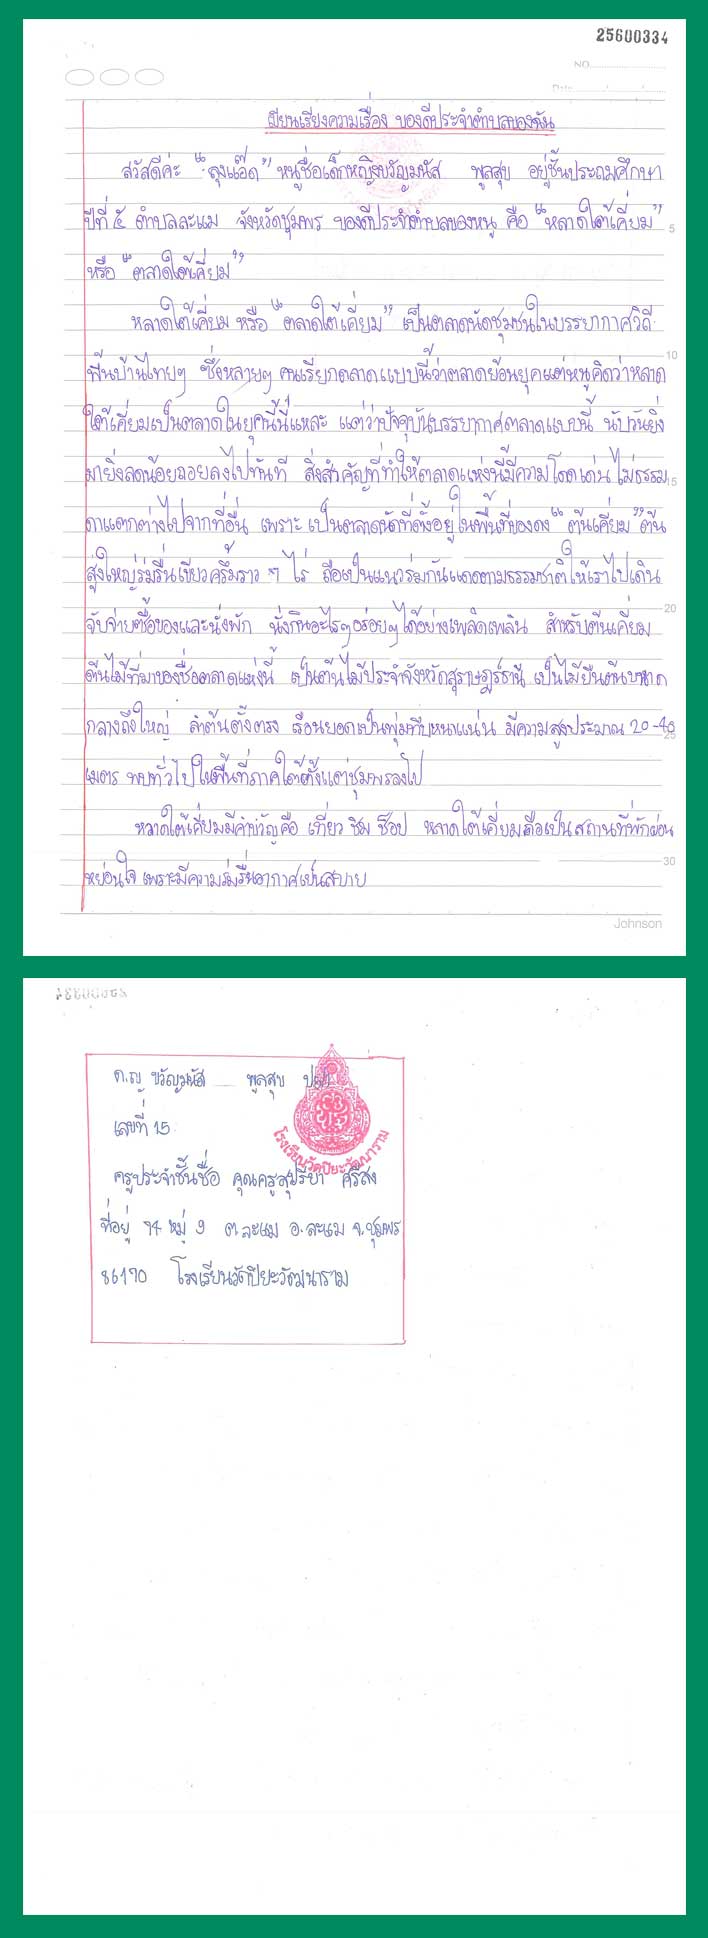 25600334
NO.
Date
เขียนเรียงความเรื่อง ของดีประจำตำบลของฉัน
สวัสดีค่ะ "ลุงแอ๊ด" หนูชื่อเด็กหญิงขวัญมนัส พูลสุข อยู่ชั้นประถมศึกษา
ปีที่ ๕ ตำบลละแม จังหวัดชุมพร ของดีประจำตำบลของหนู คือ "หลาดใต้เคี่ยม"
5
หรือ "ตลาดใต้เคี่ยม"
หลาดใต้เคี่ยม หรือ "ตลาดใต้เคี่ยม" เป็นตลาดนัดชุมชนในบรรยากาศวิถี
10
พื้นบ้านไทยๆ ซึ่งหลายๆ คนเรียกตลาดแบบนี้ว่าตลาดย้อนยุคแต่หนูคิดว่าหลาด
ใต้เคี่ยมเป็นตลาดในยุคนี้นี่แหละ แต่ว่าปัจจุบันบรรยากาศตลาดแบบนี้ นับวันยิ่ง
มายิ่งลดน้อยถอยลงไปทันที สิ่งสำคัญที่ทำให้ตลาดแห่งนี้มีความโดดเด่น ไม่ธรรม
15
ดาแตกต่างไปจากที่อื่น เพราะ เป็นตลาดนัดที่ตั้งอยู่ในพื้นที่ของดง "ต้นเคี่ยม" ต้น
สูงใหญ่ร่มรื่นเขียวครึ้มราว ๆ ไร่ ถือเป็นแนวร่มกันแดดตามธรรมชาติให้เราไปเดิน
20
จับจ่ายซื้อของและนั่งพัก นั่งกินอะไรๆอร่อยๆได้อย่างเพลิดเพลิน สำหรับต้นเคี่ยม
ต้นไม้ที่มาของชื่อตลาดแห่งนี้ เป็นต้นไม้ประจำจังหวัดสุราษฎร์ธานี เป็นไม้ยืนต้นขนาด
กลางถึงใหญ่ ลำต้นตั้งตรง เรือนยอดเป็นพุ่มทึบหนาแน่น มีความสูงประมาณ 20-40
25
เมตร พบทั่วไปในพื้นที่ภาคใต้ตั้งแต่ชุมพรลงไป
หลาดใต้เคี่ยมมีคำขวัญคือ เที่ยว ชิม ช็อป หลาดใต้เคี่ยมถือเป็นสถานที่พักผ่อน
30
หย่อนใจ เพราะมีความร่มรื่นอากาศเย็นสบาย
Johnson
ด.ญ ขวัญมนัส พูลสุข
เลขที่ 15
โรงเรียนวัดปิยะวัฒนาราม
ครูประจำชั้นชื่อ คุณครูสุปรียา ศรีสง
ที่อยู่ 74 หมู่ 9 ต.ละแม อ.ละแม จ.ชุมพร
86170 โรงเรียนวัดปิยะวัฒนาราม